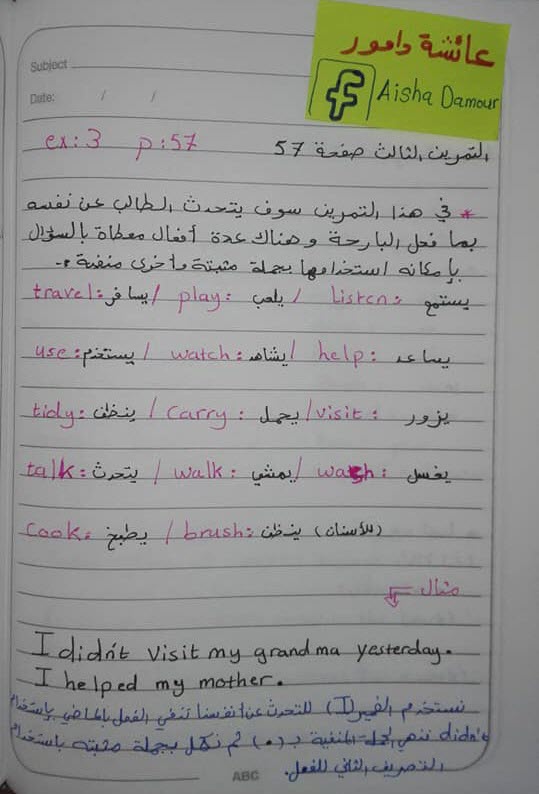 عائشة دامور
Aisha Damour
Subject
Date: / /
ex:3 p:57 التمرين الثالث صفحة 57
* في هذا التمرين سوف يتحدث الطالب عن نفسه
بما فعل البارحة وهناك عدة أفعال معطاة بالسؤال
بإمكانه استخدامها بجملة مثبتة وأخرى منفية .-
travel: يسافر / play: يلعب / Listen: يستمع
use: يستخدم / watch: يشاهد / help: يساعد
tidy: ينظف / Carry: يحمل / visit: يزور
talk: يتحدث / walk: يمشي / wash: يغسل
Cook: يطبخ / brush: ينظف (للأسنان)
مثال
I didn't visit my grandma yesterday.
I helped my mother.
نستخدم الضمير (I) للتحدث عن أنفسنا ننفي الفعل بالماضي بإستخدام
didn't ننهي الجملة المنفية بـ (.) ثم نكمل بجملة مثبته باستخدام
التصريف الثاني للفعل.
ABC